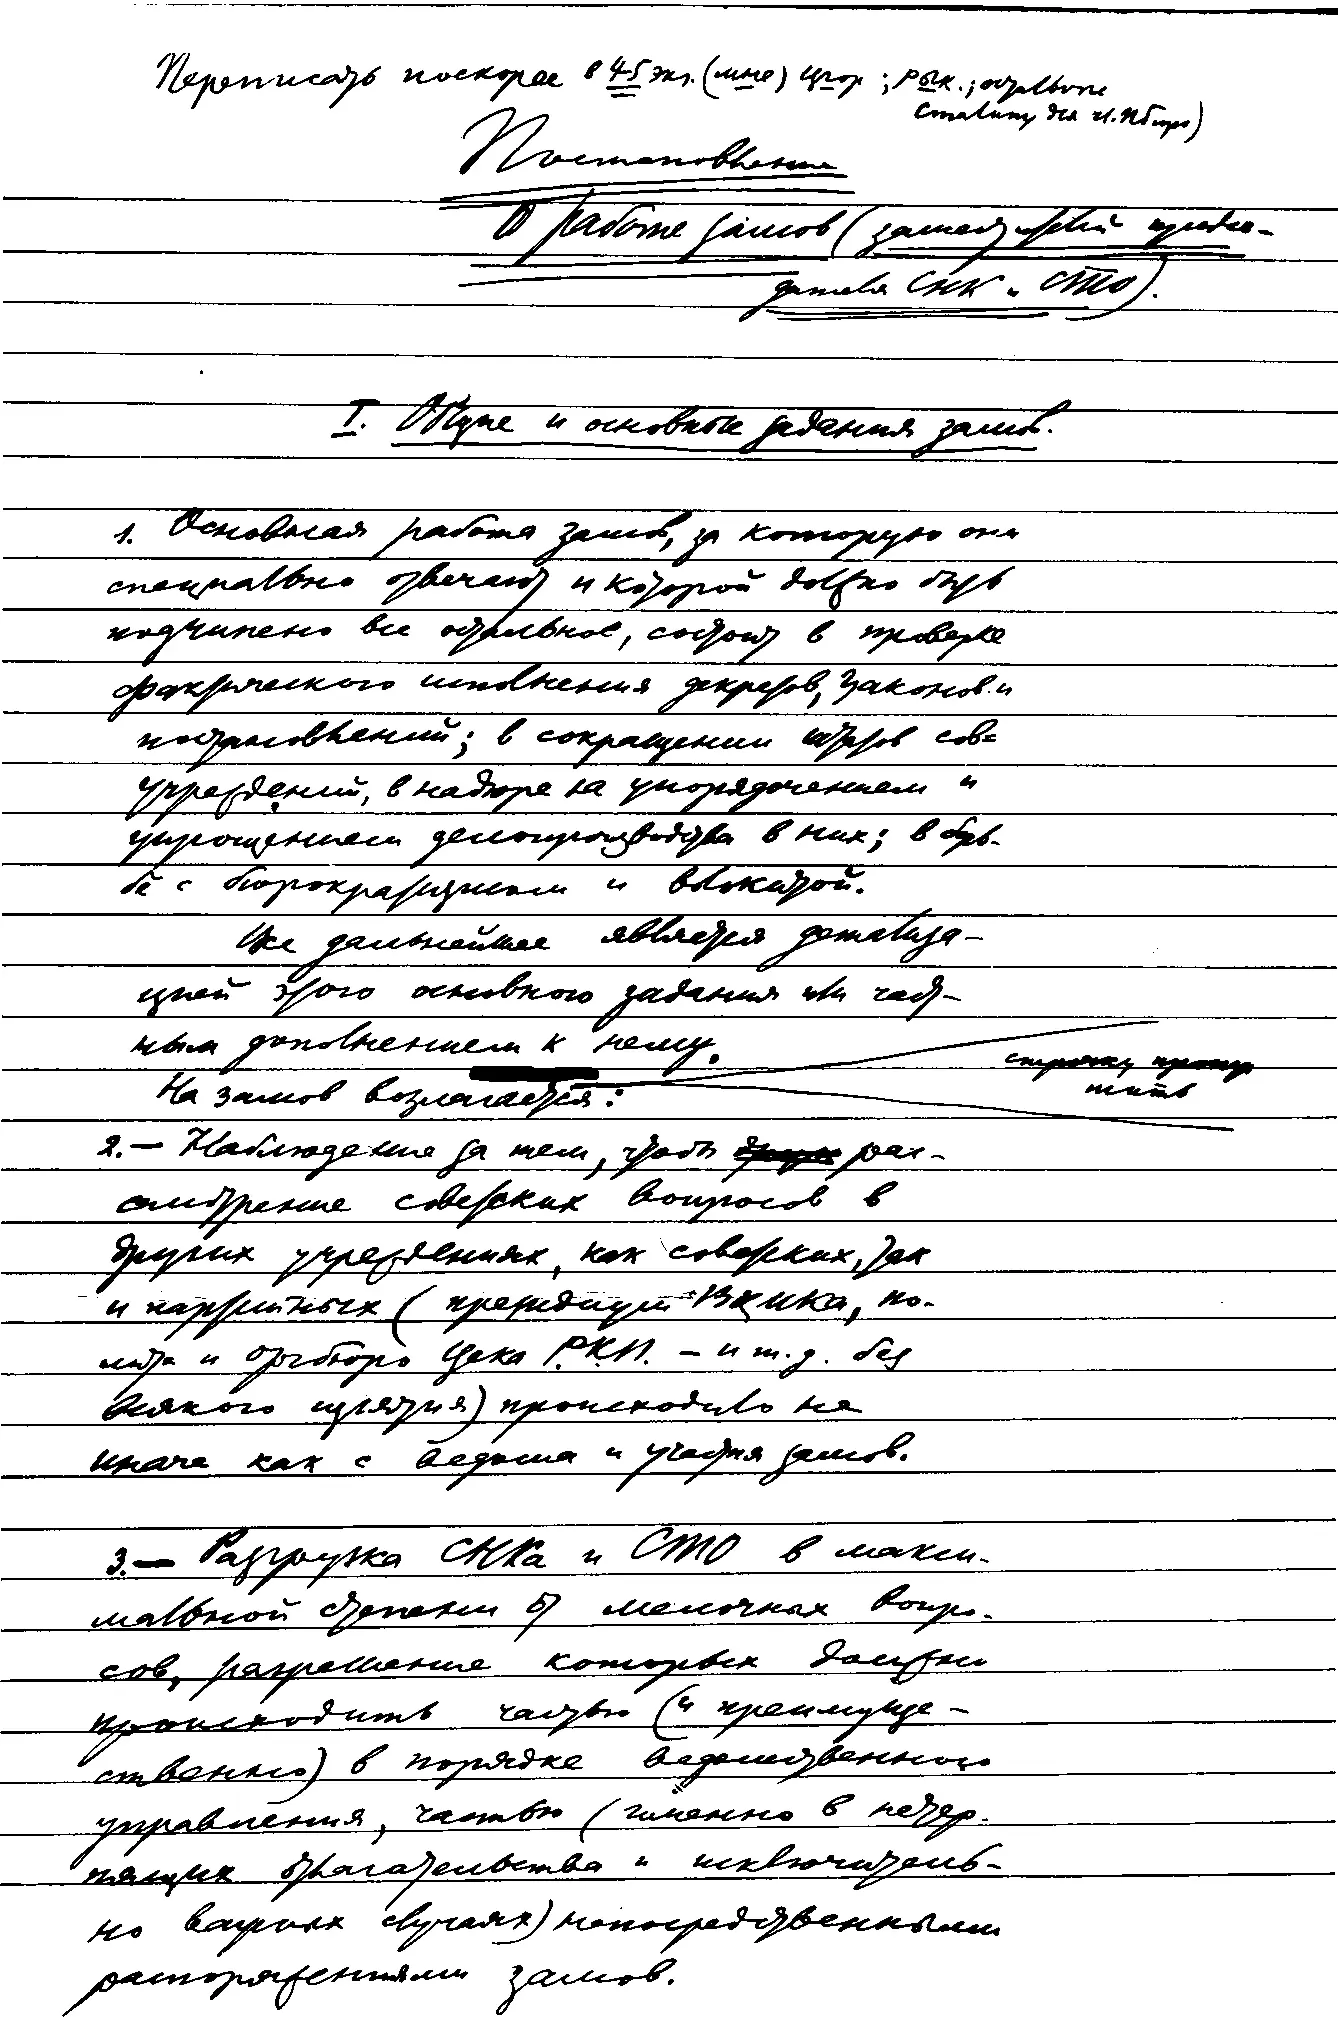 Переписать поскорее в 45 экз. (мне) Цюр.; Рык.; остальное
Сталину для чл. Пбюро)
Постановление
О работе замов (заместителей председа-
дателя СНК и СТО).
I. Общие и основные задания замов.
1. Основная работа замов, за которую они
специально отвечают и которой должно быть
подчинено все остальное, состоит в проверке
фактического исполнения декретов, законов и
постановлений; в сокращении штатов сов-
учреждений, в надзоре за упорядочением и
упрощением делопроизводства в них; в борь-
бе с бюрократизмом и волокитой.
Все дальнейшее является детализа-
цией этого основного задания или част-
ным дополнением к нему.
На замов возлагается:
строчку пропус
тить
2. — Наблюдение за тем, чтобы рас-
смотрение советских вопросов в
других учреждениях, как советских, так
и партийных (президиум ВЦИКа, по-
лит- и оргбюро Цека Р.К.П. — и т. д. без
всякого изъятия) происходило не
иначе как с ведома и участия замов.
3. — Разгрузка СНКа и СТО в макси-
мальной степени от мелочных вопро-
сов, разрешение которых должно
происходить частью (и преимуще-
ственно) в порядке ведомственного
управления, частью (именно в нетер-
пящих отлагательства и исключитель-
но важных случаях) непосредственными
распоряжениями замов.